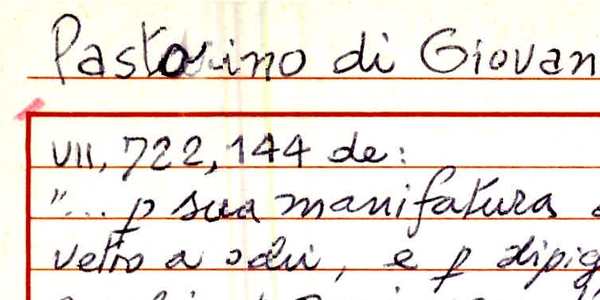 Pastorino di Giovan
VII, 722, 144 de:
"... p sua manifatura
vetro a
e p dipig